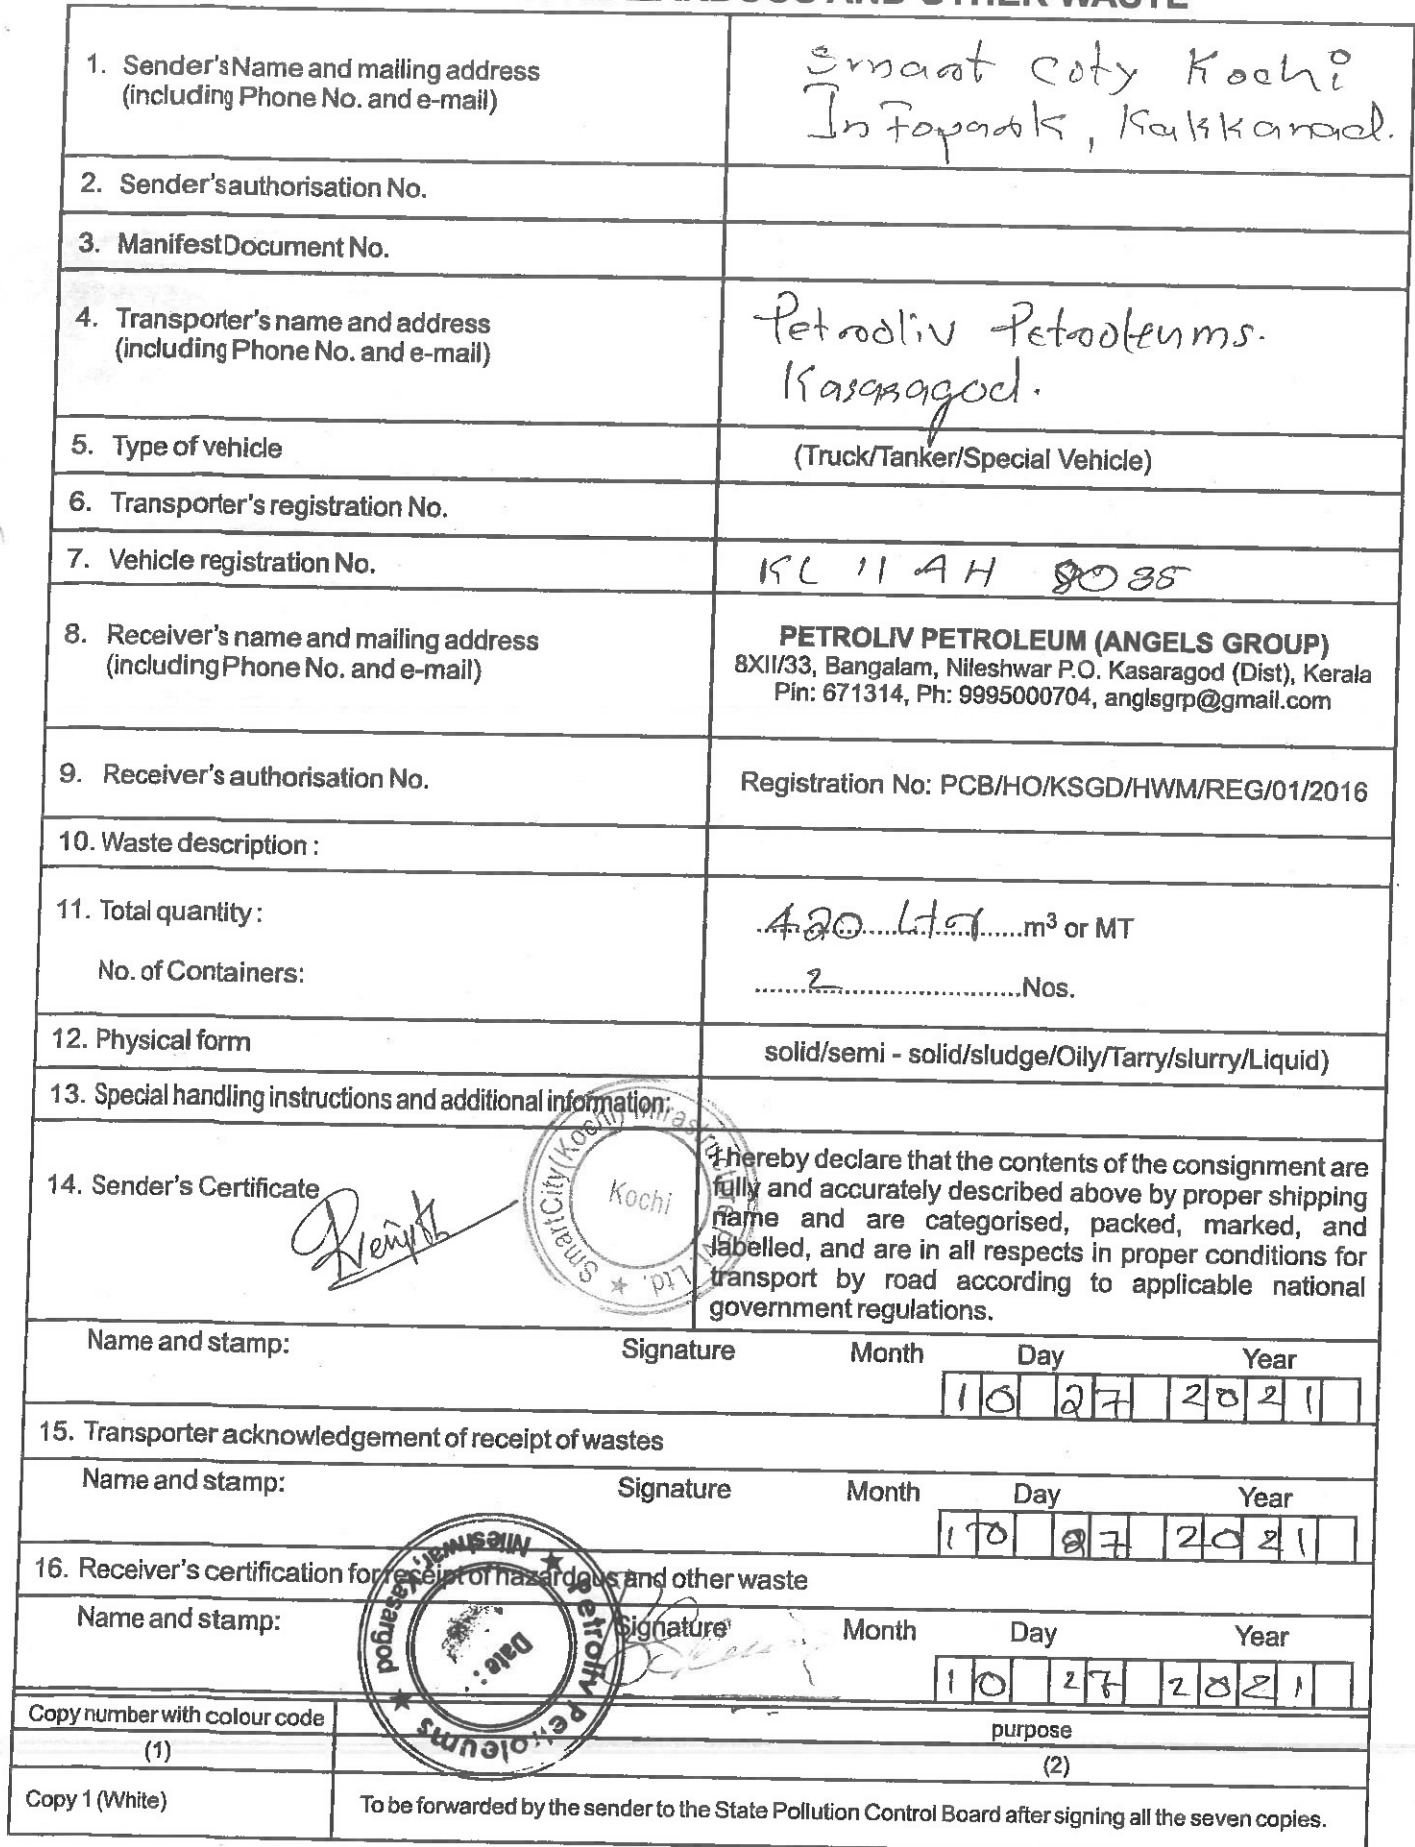 HAZARDOUS AND OTHER WASTE
1. Sender's Name and mailing address
(including Phone No. and e-mail)
Smart City Kochi
Infopark, Kakkanad.
2. Sender's authorisation No.
3. Manifest Document No.
4. Transporter's name and address
(including Phone No. and e-mail)
Petroliv Petroleums.
Kasaragod.
5. Type of vehicle
(Truck/Tanker/Special Vehicle)
6. Transporter's registration No.
7. Vehicle registration No.
KL 11 AH 8035
8. Receiver's name and mailing address
(including Phone No. and e-mail)
PETROLIV PETROLEUM (ANGELS GROUP)
8XII/33, Bangalam, Nileshwar P.O. Kasaragod (Dist), Kerala
Pin: 671314, Ph: 9995000704, anglsgrp@gmail.com
9. Receiver's authorisation No.
Registration No: PCB/HO/KSGD/HWM/REG/01/2016
10. Waste description :
11. Total quantity :
420 Ltr m³ or MT
No. of Containers:
2 Nos.
12. Physical form
solid/semi - solid/sludge/Oily/Tarry/slurry/Liquid)
13. Special handling instructions and additional information:
14. Sender's Certificate
SmartCity (Kochi) Infrastructure Pvt. Ltd. ★
Kochi
I hereby declare that the contents of the consignment are
fully and accurately described above by proper shipping
name and are categorised, packed, marked, and
labelled, and are in all respects in proper conditions for
transport by road according to applicable national
government regulations.
Name and stamp: Signature Month Day Year
10 27 2021
15. Transporter acknowledgement of receipt of wastes
Name and stamp: Signature Month Day Year
10 27 2021
16. Receiver's certification for receipt of hazardous and other waste
Name and stamp: Signature Month Day Year
10 27 2021
★ Petroliv Petroleums ★ Nileshwar, Kasargod
Date :
Copy number with colour code
purpose
(1)
(2)
Copy 1 (White)
To be forwarded by the sender to the State Pollution Control Board after signing all the seven copies.